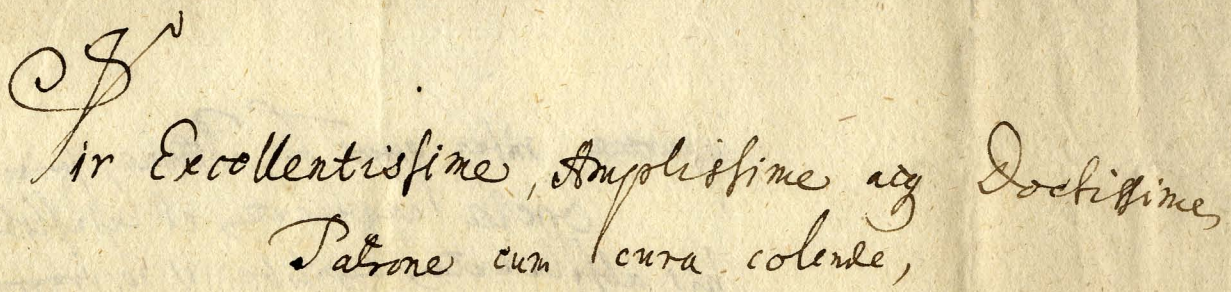 Vir Excellentissime, Amplissime acq Doctissime,
Patrone cum cura colende,